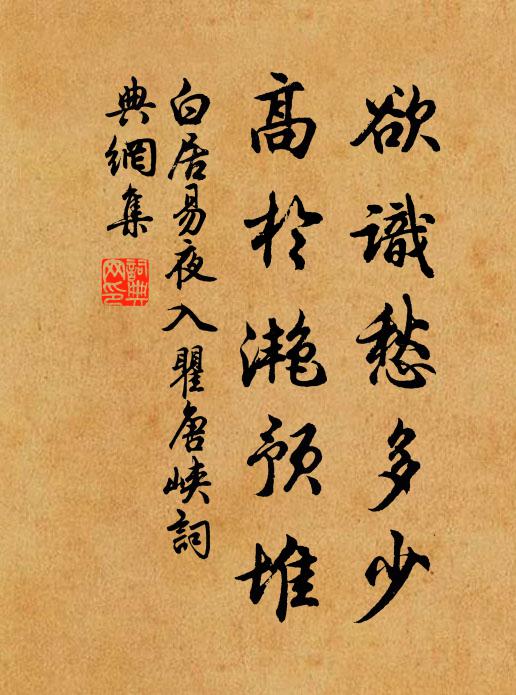 欲識愁多少
高於灧預堆
白居易夜入瞿唐峽詞
典網集
詞典网印